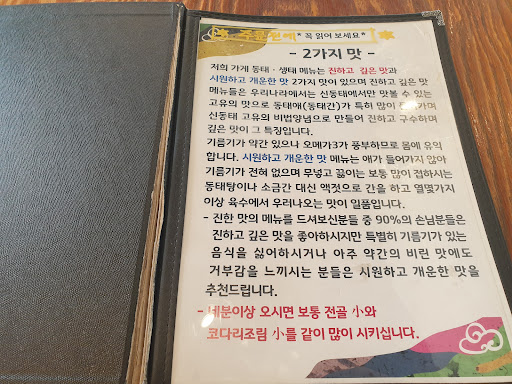 주문전에 * 꼭 읽어 보세요*
- 2가지 맛 -
저희 가게 동태 · 생태 메뉴는 진하고 깊은 맛과
시원하고 개운한 맛 2가지 맛이 있으며 진하고 깊은 맛
메뉴들은 우리나라에서는 신동태에서만 맛볼 수 있는
고유의 맛으로 동태애(동태간)가 특히 많이 가며
신동태 고유의 비법양념으로 만들어 진하고 구수하며
깊은 맛이 그 특징입니다.
기름기가 약간 있으나 오메가3가 풍부하므로 몸에 유익
합니다. 시원하고 개운한 맛 메뉴는 애가 들어가지 않아
기름기가 전혀 없으며 무넣고 끓이는 보통 많이 접하시는
동태탕이나 소금간 대신 액젓으로 간을 하고 열몇가지
이상 육수에서 우러나오는 맛이 일품입니다.
- 진한 맛의 메뉴를 드셔보신분들 중 90%의 손님분들은
진하고 깊은 맛을 좋아하시지만 특별히 기름기가 있는
음식을 싫어하시거나 아주 약간의 비린 맛에도
거부감을 느끼시는 분들은 시원하고 개운한 맛을
추천드립니다.
- 네분이상 오시면 보통 전골 小와
코다리조림 小를 같이 많이 시키십니다.